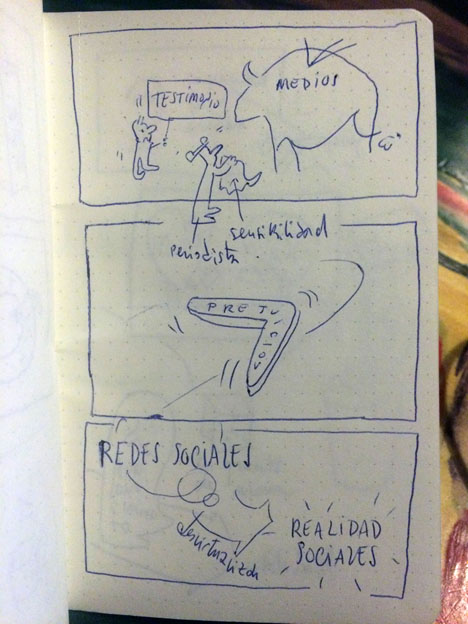 TESTIMONIO
MEDIOS
sensibilidad
periodista
PREJUICIOS
REDES SOCIALES
REALIDAD
SOCIALES